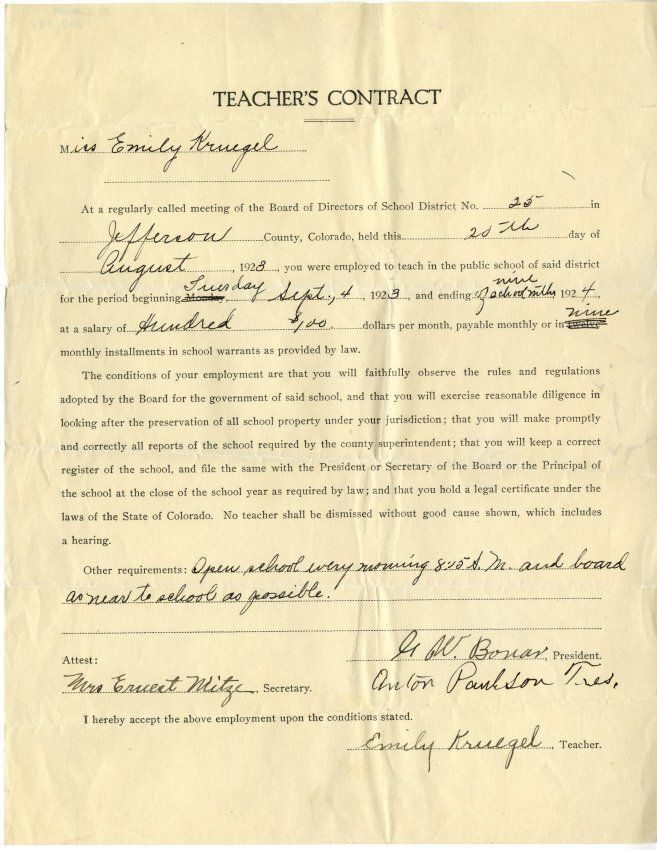 TEACHER'S CONTRACT
Miss Emily Kruegel
At a regularly called meeting of the Board of Directors of School District No. 25 in
Jefferson County, Colorado, held this 25th day of
August, 1923, you were employed to teach in the public school of said district
for the period beginning Monday, Tuesday Sept., 4 1923 and ending of nine school mths 1924,
at a salary of Hundred $1,00 dollars per month, payable monthly or in twelve nine
monthly installments in school warrants as provided by law.
The conditions of your employment are that you will faithfully observe the rules and regulations
adopted by the Board for the government of said school, and that you will exercise reasonable diligence in
looking after the preservation of all school property under your jurisdiction; that you will make promptly
and correctly all reports of the school required by the county superintendent; that you will keep a correct
register of the school, and file the same with the President or Secretary of the Board or the Principal of
the school at the close of the school year as required by law; and that you hold a legal certificate under the
laws of the State of Colorado. No teacher shall be dismissed without good cause shown, which includes
a hearing.
Other requirements: Open school every morning 8:15 A.M. and board
as near to school as possible.
G W. Bonar, President.
Attest:
Mrs Ernest Mitze, Secretary. Anton Paulson Tres.
I hereby accept the above employment upon the conditions stated.
Emily Kruegel, Teacher.